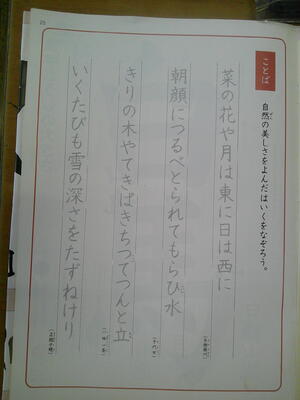 ことば
自然の美しさをよんだはいくをなぞろう。
菜の花や月は東に日は西に
朝顔につるべとられてもらひ水
(千代女)
きりの木やてきぱきちつてつんと立
(小林一茶)
いくたびも雪の深さをたずねけり
(正岡子規)